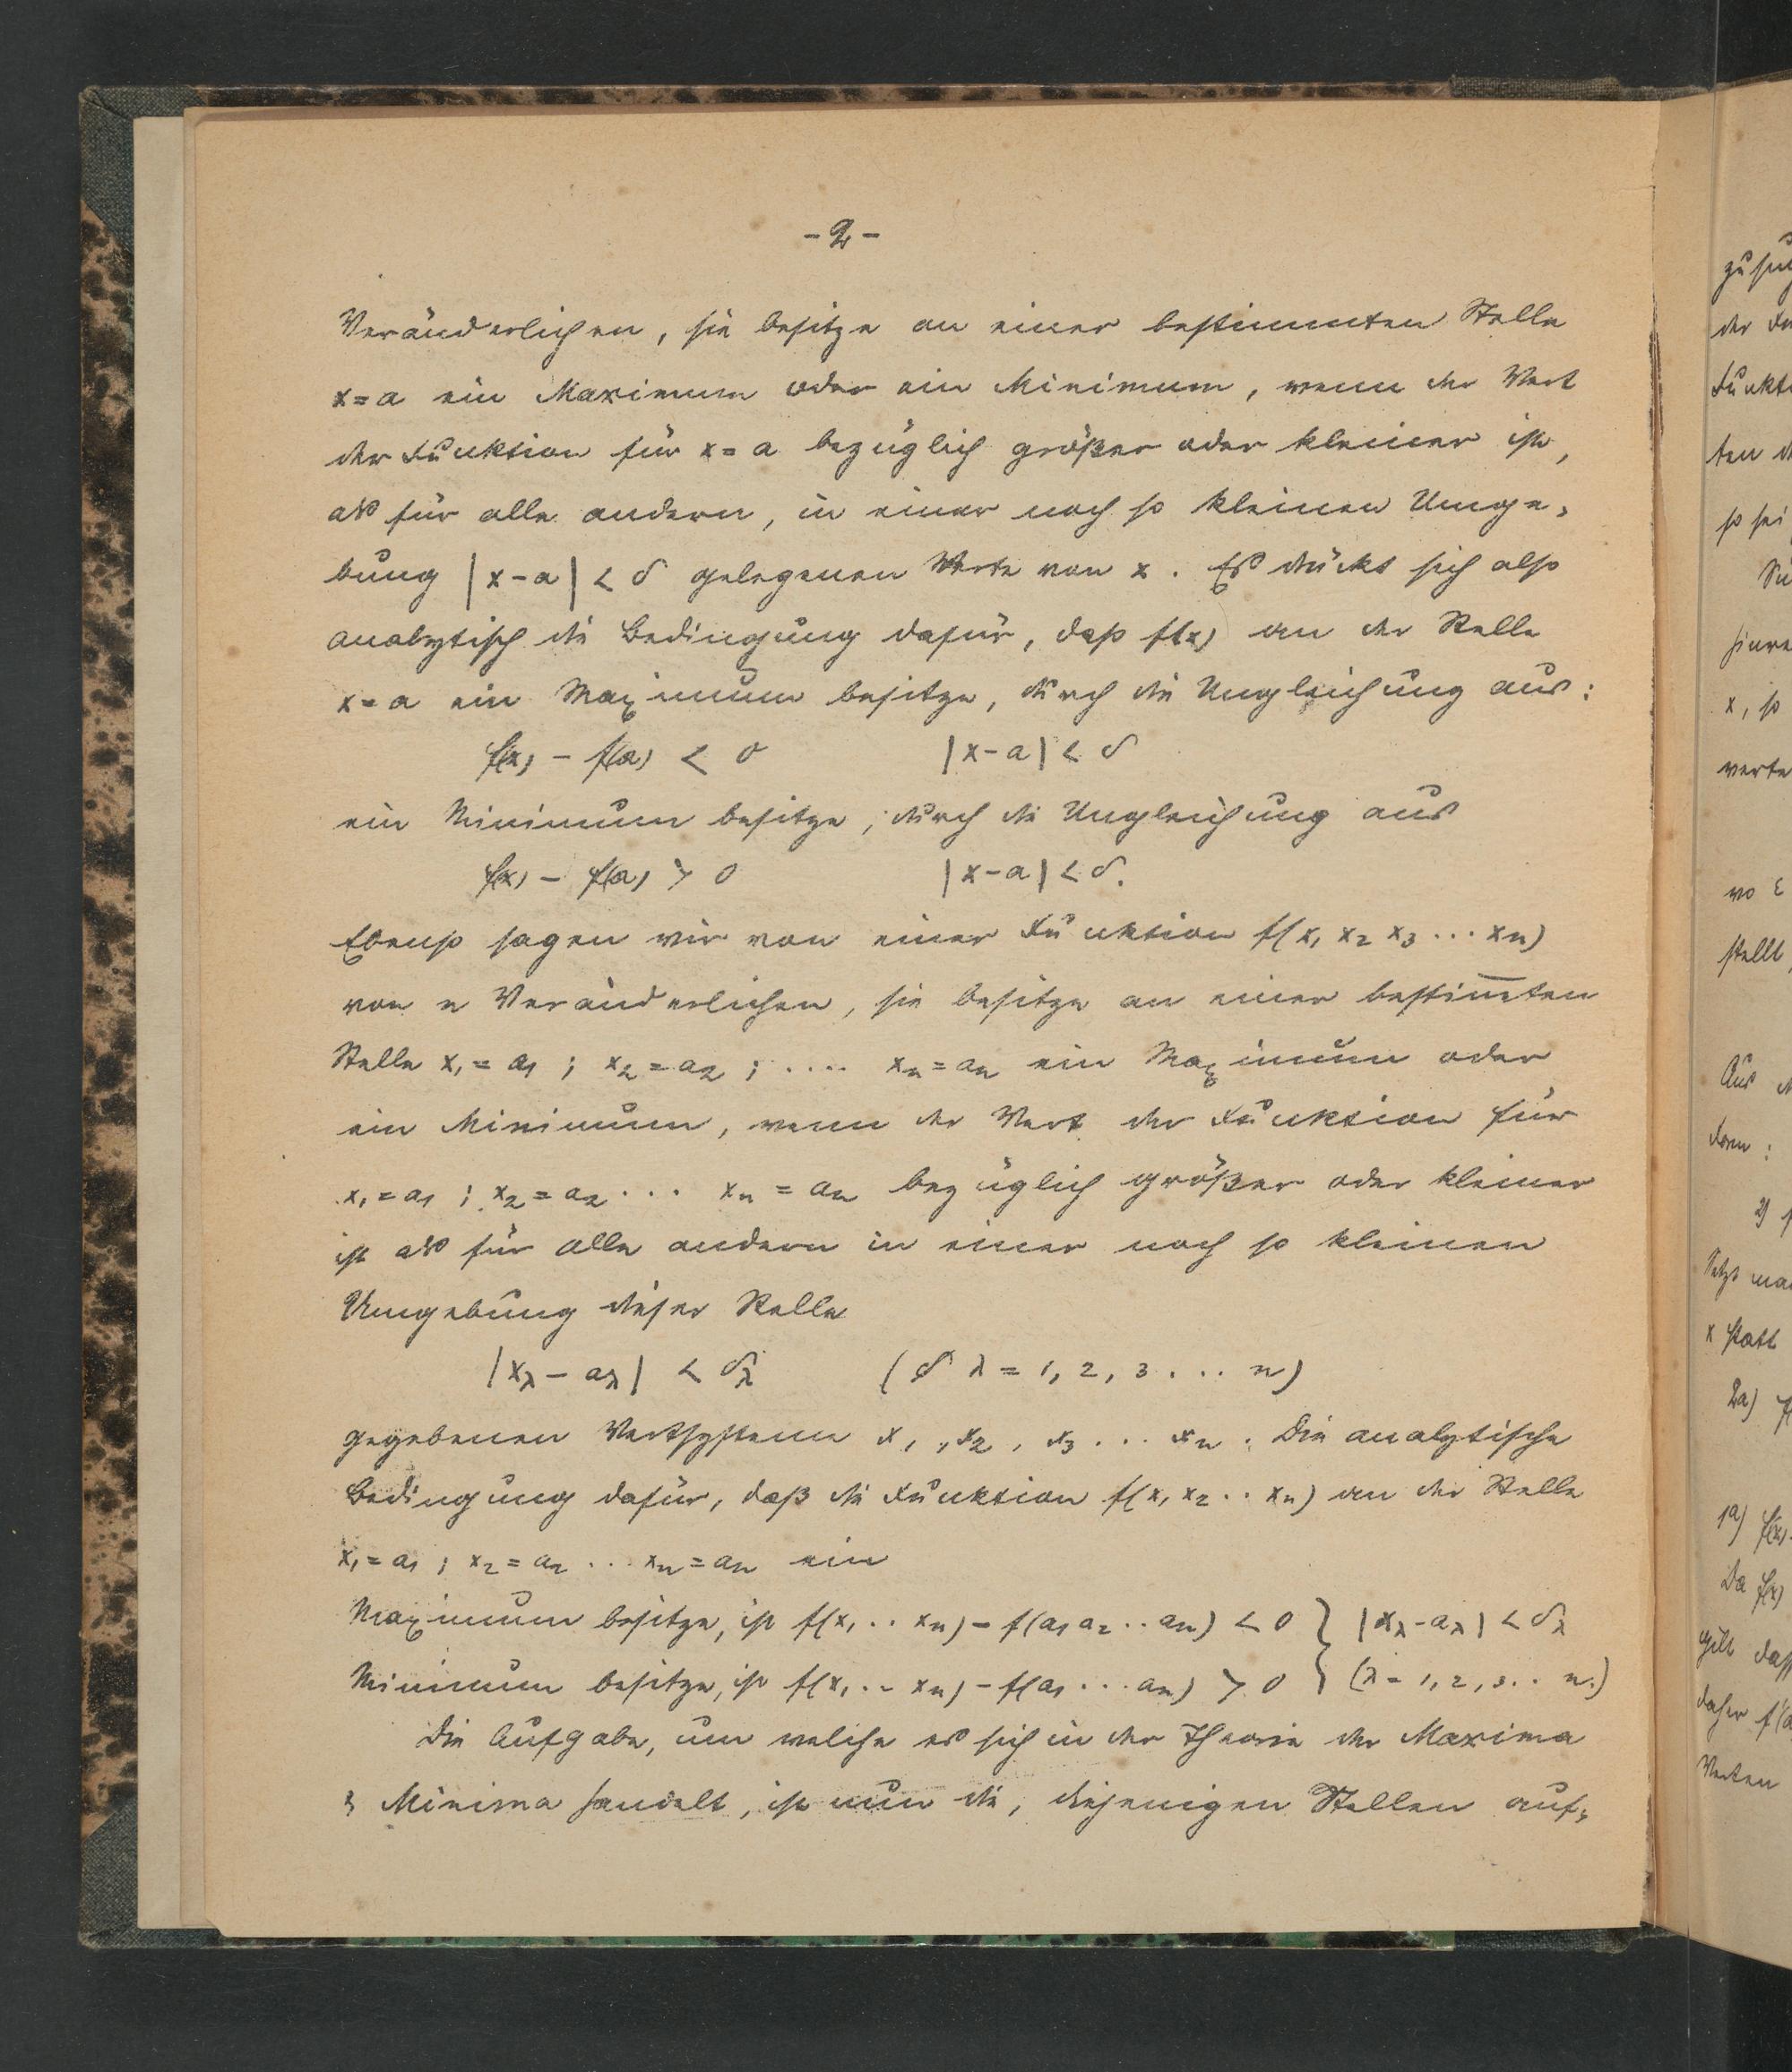 - 2 -
Veränderlichen, sie besitze an einer bestimmten Stelle
x = a ein Maximum oder ein Minimum, wenn der Wert
der Funktion für x = a bezüglich größer oder kleiner ist,
als für alle andern, in einer noch so kleinen Umge-
bung |x - a| < δ gelegenen Werte von x. Es drückt sich also
analytisch die Bedingung dafür, dass f(x) an der Stelle
x = a ein Maximum besitze, durch die Ungleichung aus:
f(x) - f(a) < 0 |x - a| < δ
ein Minimum besitze, durch die Ungleichung aus
f(x) - f(a) > 0 |x - a| < δ.
Ebenso sagen wir von einer Funktion f(x₁ x₂ x₃ ... xₙ)
von n Veränderlichen, sie besitze an einer bestim̅ten
Stelle x₁ = a₁ ; x₂ = a₂ ; .... xₙ = aₙ ein Maximum oder
ein Minimum, wenn der Wert der Funktion für
x₁ = a₁ ; x₂ = a₂ ... xₙ = aₙ bezüglich größer oder kleiner
ist als für alle andern in einer noch so kleinen
Umgebung dieser Stelle
|x_λ - a_λ| < δ_λ (λ = 1, 2, 3 ... n)
gegebenen Wertsysteme x₁, x₂, x₃ ... xₙ. Die analytische
Bedingung dafür, daß die Funktion f(x₁ x₂ .. xₙ) an der Stelle
x₁ = a₁ ; x₂ = a₂ ... xₙ = aₙ ein
Maximum besitze, ist f(x₁ .. xₙ) - f(a₁ a₂ .. aₙ) < 0 } |x_λ - a_λ| < δ_λ
Minimum besitze, ist f(x₁ .. xₙ) - f(a₁ ... aₙ) > 0 } (λ = 1, 2, 3 .. n.)
Die Aufgabe, um welche es sich in der Theorie der Maxima
& Minima handelt, ist nun die, diejenigen Stellen auf-